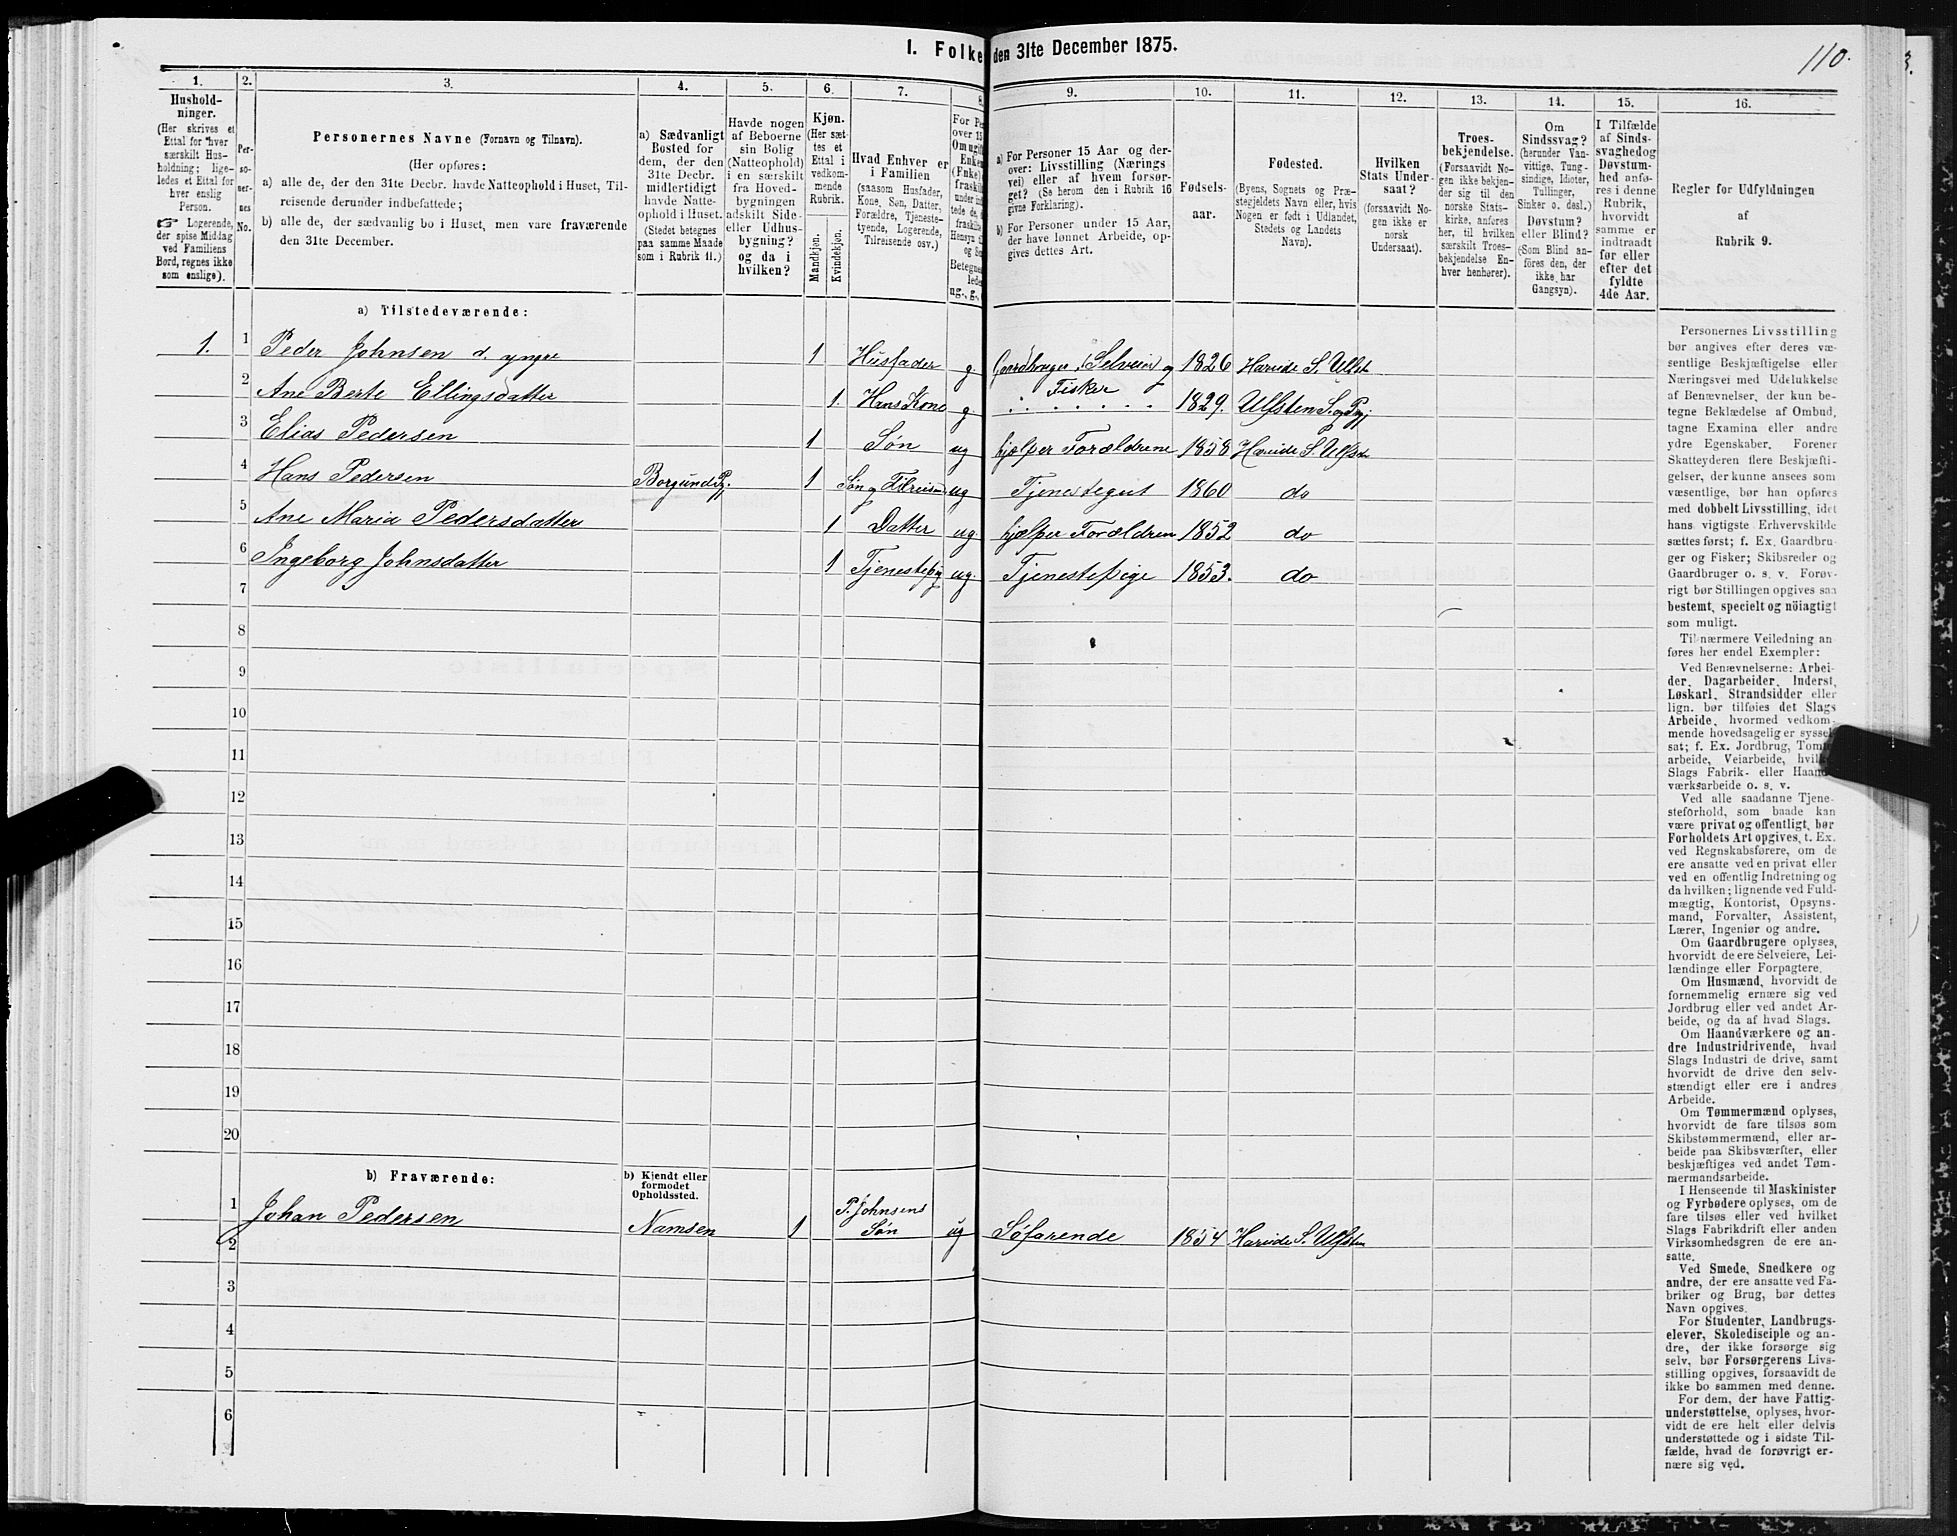 I. Folke den 31te December 1875.
110.
1.
Hushold-
ninger.
(Her skrives et
Ettal for hver
særskilt Hus-
holdning; lige-
ledes et Ettal for
hver enslig
Person.
☞ Logerende,
der spise Middag
ved Familiens
Bord, regnes ikke
som enslige).
2.
Per-
so-
ner-
nes
No.
3.
Personernes Navne (Fornavn og Tilnavn).
(Her opføres:
a) alle de, der den 31te Decbr. havde Natteophold i Huset, Til-
reisende derunder indbefattede;
b) alle de, der sædvanlig bo i Huset, men vare fraværende
den 31te December.
4.
a) Sædvanligt
Bosted for
dem, der den
31te Decbr.
midlertidigt
havde Natte-
ophold i Huset.
(Stedet betegnes
paa samme Maade
som i Rubrik 11.)
5.
Havde nogen
af Beboerne
sin Bolig
(Natteophold)
i en særskilt
fra Hoved-
bygningen
adskilt Side-
eller Udhus-
bygning?
og da i
hvilken?
6.
Kjøn.
(Her sæt-
tes et
Ettal i
vedkom-
mende
Rubrik.
Mandkjøn.
Kvindekjøn.
7.
Hvad Enhver er
i Familien
(saasom Husfader,
Kone, Søn, Datter,
Forældre, Tjeneste-
tyende, Logerende,
Tilreisende osv.)
8.
For Pe
over 15
Om ugift
Enke
(Fnke)
fraskil
under in
tede de,
fraskil
Hensyn
og S
Betegne
lede
ug., g.,
9.
a) For Personer 15 Aar og der-
over: Livsstilling (Nærings
vei) eller af hvem forsør-
get? (Se herom den i Rubrik 16
givne Forklaring).
b) For Personer under 15 Aar,
der have lønnet Arbeide, op-
gives dettes Art.
10.
Fødsels-
aar.
11.
Fødested.
(Byens, Sognets og Præ-
stegjeldets Navn eller, hvis
Nogen er født i Udlandet,
Stedets og Landets
Navn).
12.
Hvilken
Stats Under-
saat?
(forsaavidt No-
gen ikke er
norsk
Undersaat).
13.
Troes-
bekjendelse.
(Forsaavidt No-
gen ikke bekjen-
der sig til den
norske Stats-
kirke, anføres
her, til hvilken
særskilt Troes-
bekjendelse En-
hver henhører).
14.
Om
Sindssvag?
(herunder Van-
vittige, Tung-
sindige, Idioter,
Tullinger,
Sinker o. desl.)
Døvstum?
eller Blind?
(Som Blind an-
føres den, der
ikke har
Gangsyn).
15.
I Tilfælde
af Sinds-
svaghed og
Døvstum-
hed anfø-
res i denne
Rubrik,
hvorvidt
samme er
indtraadt
før eller
efter det
fyldte
4de Aar.
16.
Regler for Udfyldningen
af
Rubrik 9.
a) Tilstedeværende:
1. 1 Peder Johnsen d. yngre 1 Husfader g. Gaardbruger (Selveier) og Fisker 1826 Hareide S. Ulfst
2 Ane Berte Ellingsdatter 1. Hans Kone g. 1829. Ulfsten S. og Pgj
3 Elias Pedersen 1 Søn ug hjælper Forældrene 1858 Hareide S. Ulfsten
4 Hans Pedersen Borgund Pgj. 1 Søn og Tilreisende ug Tjenestegut 1860 do
5 Ane Maria Pedersdatter 1 Datter ug. hjælper Forældren 1852 do
6 Ingeborg Johnsdatter 1 Tjenestepig ug. Tjenestepige 1853. do
7
8
9
10
11
12
13
14
15
16
17
18
19
20
b) Fraværende:
b) Kjendt eller
formodet
Opholdssted.
1 Johan Pedersen Namsen 1 P. Johnsens Søn ug Søfarende 1854 Hareide S. Ulfsten
2
3
4
5
6
Personernes Livsstilling
bør angives efter deres væ-
sentlige Beskjæftigelse eller
Næringsvei med Udelukkelse
af Benævnelser, der kun be-
tegne Beklædelse af Ombud,
tagne Examina eller andre
ydre Egenskaber. Forener
Skatteyderen flere Beskjæfti-
gelser, der kunne ansees som
væsentlige, bør han opføres
med dobbelt Livsstilling, idet
hans vigtigste Erhvervskilde
sættes først; f. Ex. Gaardbru-
ger og Fisker; Skibsreder og
Gaardbruger o. s. v. Forøv-
rigt bør Stillingen opgives saa
bestemt, specielt og nöiagtigt
som muligt.
Til nærmere Veiledning an-
føres her endel Exempler:
Ved Benævnelserne: Arbei-
der, Dagarbeider, Inderst,
Løskarl, Strandsidder eller
lign. bør tilføies det Slags
Arbeide, hvormed vedkom-
mende hovedsagelig er syssel-
sat; f. Ex. Jordbrug, Tom
arbeide, Veiarbeide, hvil
Slags Fabrik- eller Haand
værksarbeide o. s. v.
Ved alle saadanne Tjene-
steforhold, som baade kan
være privat og offentligt, bør
Forholdets Art opgives, t. Ex.
ved Regnskabsførere, om de
ere ansatte ved en privat eller
ved en offentlig Indretning og
da hvilken; lignende ved Fuld-
mægtig, Kontorist, Opsyns-
mand, Forvalter, Assistent,
Lærer, Ingeniør og andre.
Om Gaardbrugere oplyses,
hvorvidt de ere Selveiere, Lei-
lændinge eller Forpagtere.
Om Husmænd, hvorvidt de
fornemmelig ernære sig ved
Jordbrug eller ved andet Ar-
beide, og da af hvad Slags.
Om Haandværkere og an-
dre Industridrivende, hvad
Slags Industri de drive, samt
hvorvidt de drive den selv-
stændigt eller ere i andres
Arbeide.
Om Tømmermænd oplyses,
hvorvidt de fare tilsøs som
Skibstømmermænd, eller ar-
beide paa Skibsværfter, eller
beskjæftiges ved andet Tøm-
mermandsarbeide.
I Henseende til Maskinister
og Fyrbødere oplyses, om de
fare tilsøs eller ved hvilket
Slags Fabrikdrift eller anden
Virksomhedsgren de ere an-
satte.
Ved Smede, Snedkere og
andre, der ere ansatte ved Fa-
briker og Brug, bør dettes
Navn opgives.
For Studenter, Landbrugs-
elever, Skoledisciple og an-
dre, der ikke forsørge sig
selv, bør Forsørgerens Livs-
stilling opgives, forsaavidt de
ikke bo sammen med denne.
For dem, der have Fattig-
understøttelse, oplyses, hvor-
vidt de ere helt eller delvis
understøttede og i sidste Til-
fælde, hvad de forøvrigt er-
nære sig ved.